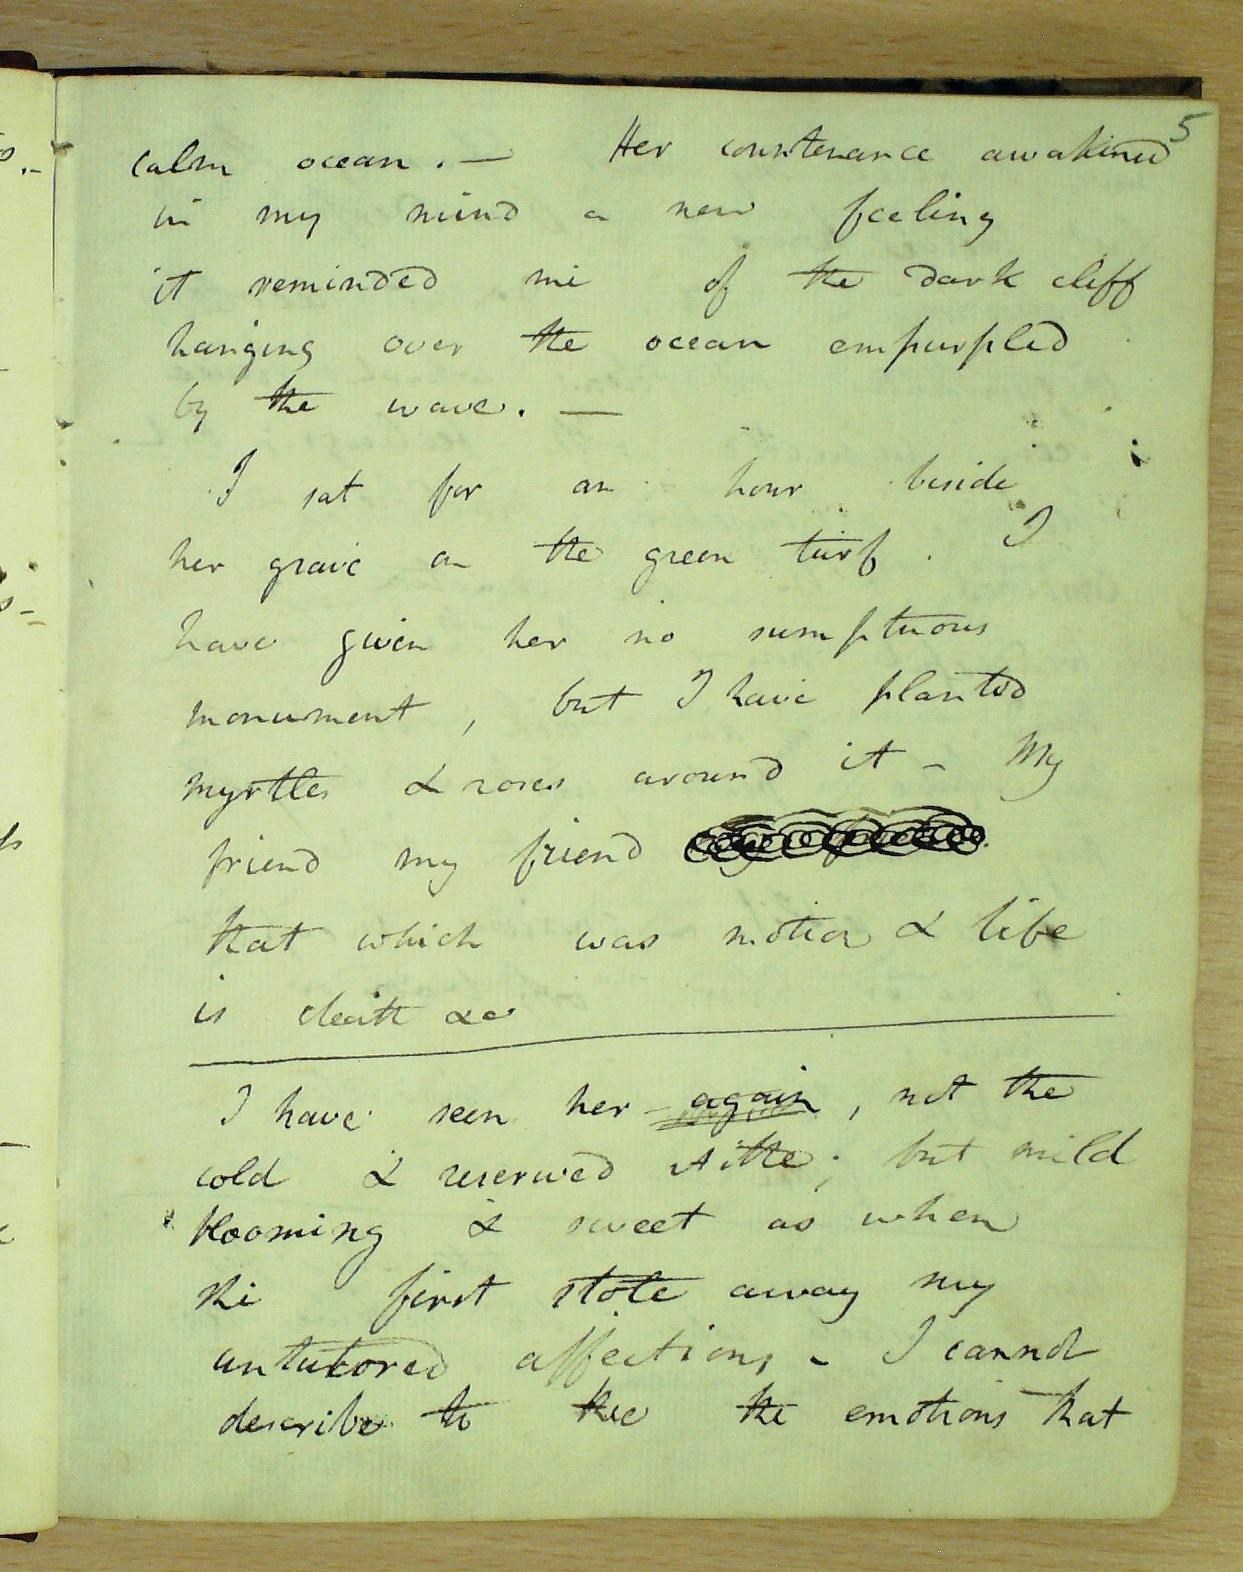 5
calm ocean. — Her countenance awakened
in my mind a new feeling
it reminded me of the dark cliff
hanging over the ocean empurpled
by the wave. —
I sat for an hour beside
her grave on the green turf. I
have given her no sumptuous
monument, but I have planted
myrtles & roses around it - My
friend my friend
that which was motion & life
is death &c
I have seen her again, not the
cold & reserved ; but mild
blooming & sweet as when
she first stole away my
untutored affections - I cannot
describe to thee the emotions that